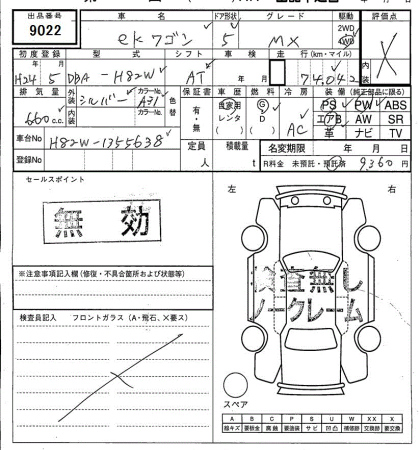 出品番号 車名 ドア形状 グレード 駆動 評価点
9022 ekワゴン 5 MX 2WD 4WD X
初度登録 型式 シフト 車検 走行(km・マイル)
H24年5月 DBA-H82W AT 年 月 74,042
排気量 外装 シルバー カラーNo. A31 色替 保証書 車歴 燃料 冷房 装備(純正部品に限る)
660cc 内装 カラーNo. 有・無 自家用 レンタ ( ) G D ( ) AC PS PW ABS
エアB AW SR
革 ナビ TV
車台No H82W-1355638 定員 人 積載量 t 名変期限 年 月 日
登録No R料金 未預託・預託済 9,360円
セールスポイント
無効
左 右
※注意事項記入欄(修復・不具合箇所および状態等)
検査無し
ノークレーム
検査員記入 フロントガラス(A・飛石、X要ス)
スペア
A B C P S U W X XX X